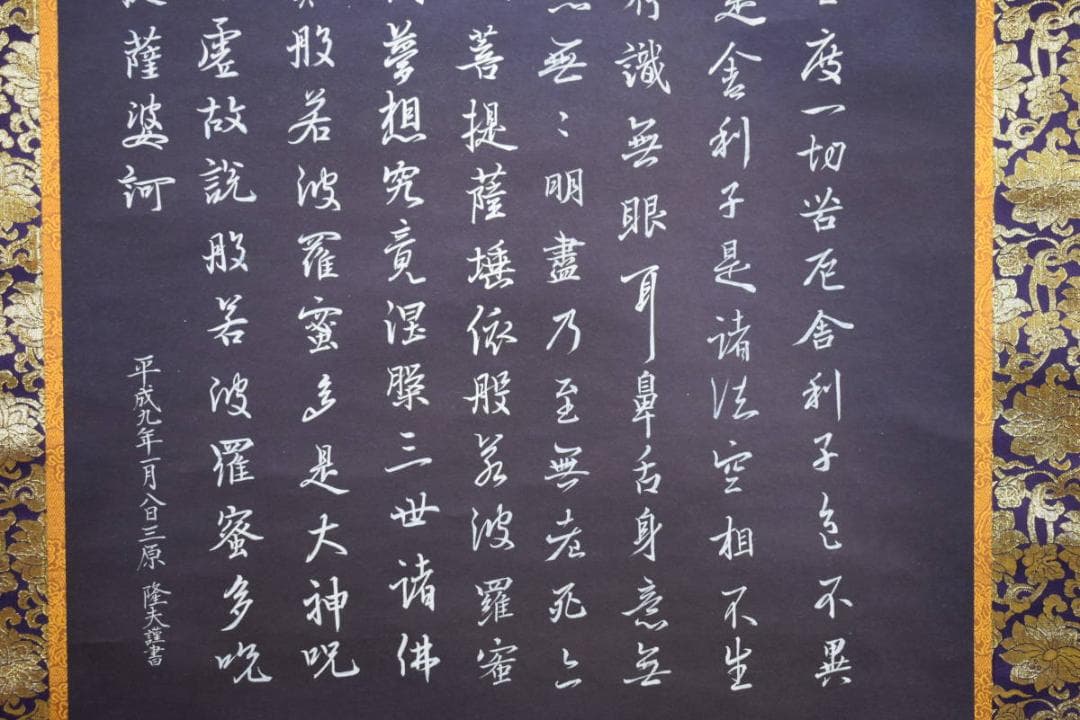 度一切苦厄舎利子色不異
是舎利子是諸法空相不生
識無眼耳鼻舌身意無
無〻明盡乃至無老死亦
菩提薩埵依般若波羅蜜
夢想究竟涅槃三世諸佛
般若波羅蜜多是大神呪
虚故説般若波羅蜜多呪
薩婆訶
平成九年一月八日三原隆夫謹書